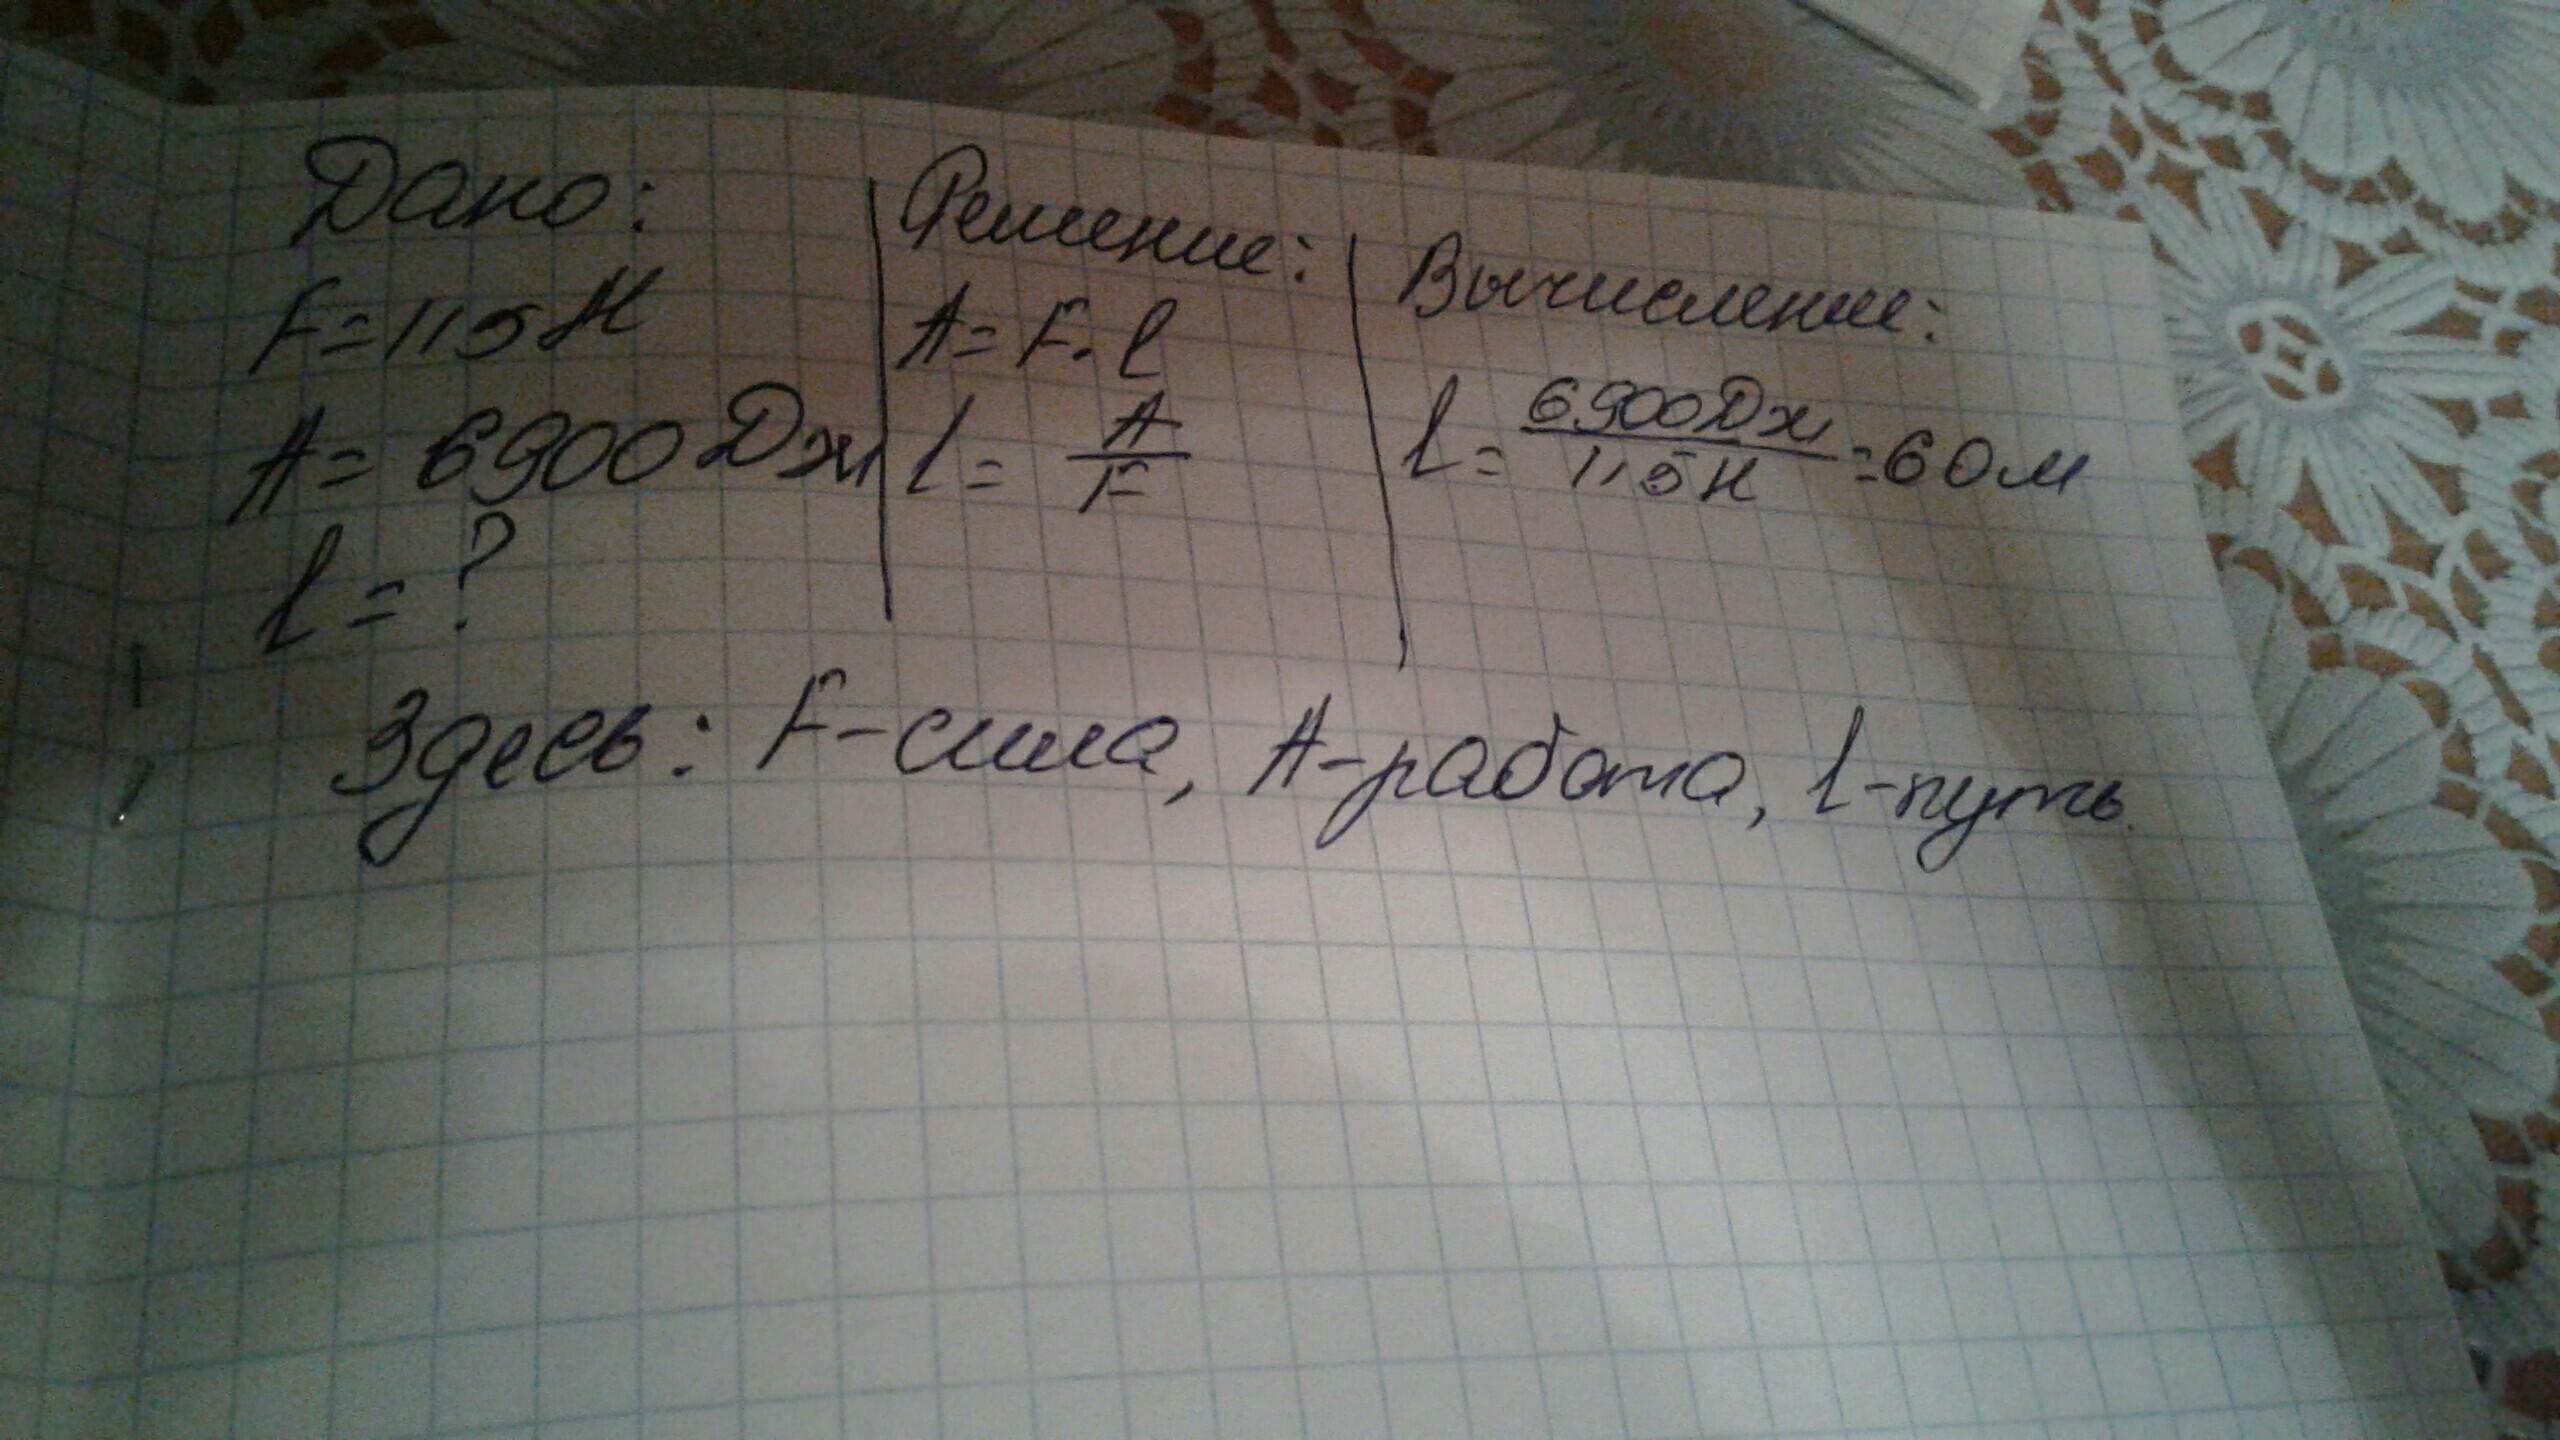 Дано:
F = 115 Н
A = 6900 Дж
l = ?
Решение:
A = F · l
l = A / F
Вычисление:
l = 6900 Дж / 115 Н = 60 м
Здесь: F - сила, A - работа, l - путь.